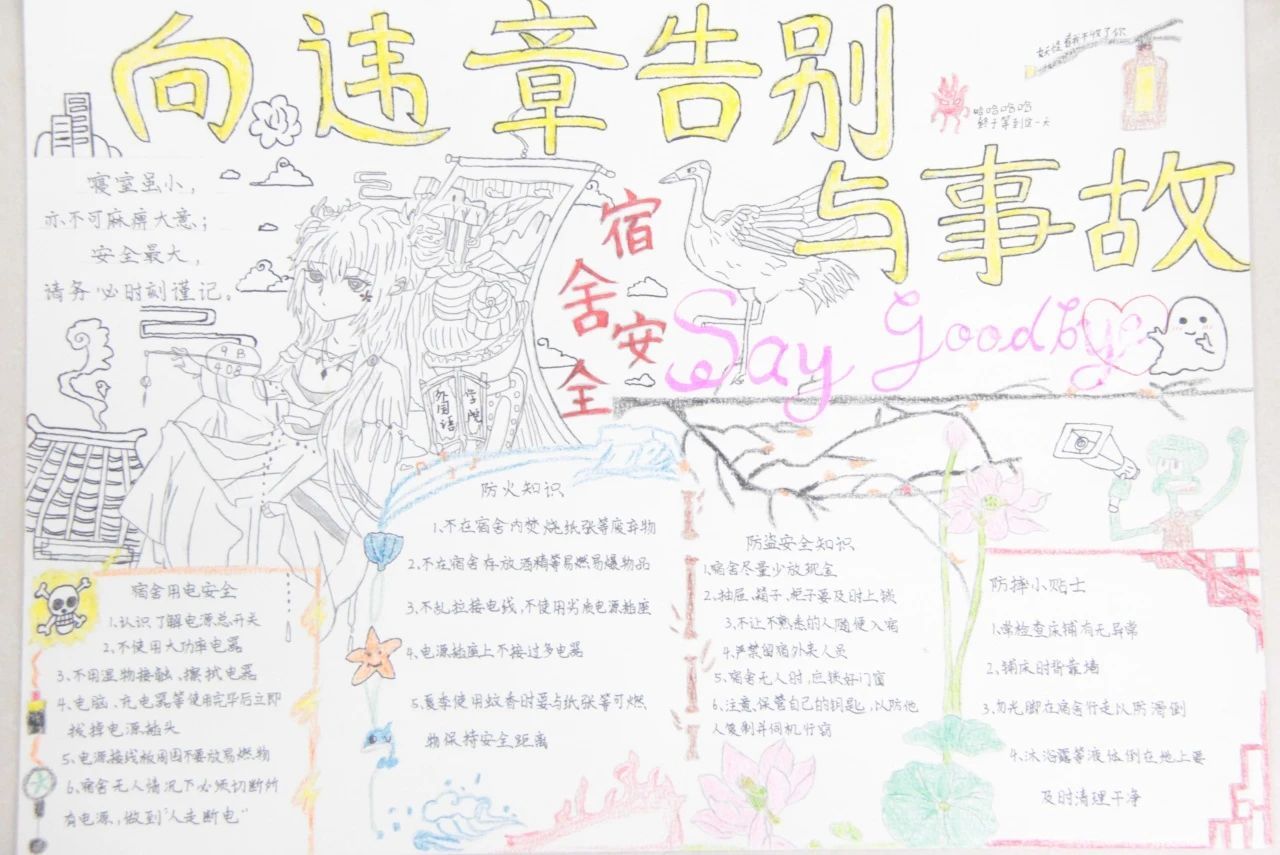 向违章告别
与事故
Say Goodbye
妖怪看我不收了你
哈哈哈哈
终于等到这一天
寝室虽小，
亦不可麻痹大意；
安全最大，
请务必时刻谨记。
宿舍安全
9B
408
外国语
学院
宿舍用电安全
1.认识了解电源总开关
2.不使用大功率电器
3、不用湿物接触、擦拭电器
4、电脑、充电器等使用完毕后立即
拔掉电源插头
5、电源接线板周围不要放易燃物
6、宿舍无人情况下必须切断所
有电源，做到“人走断电”
防火知识
1.不在宿舍内焚烧纸张等废弃物
2、不在宿舍存放酒精等易燃易爆物品
3、不乱拉接电线，不使用劣质电源插座
4、电源插座上不接过多电器
5、夏季使用蚊香时要与纸张等可燃
物保持安全距离
防盗安全知识
1.宿舍尽量少放现金
2、抽屉、箱子、柜子要及时上锁
3、不让不熟悉的人随便入宿
4.严禁留宿外来人员
5、宿舍无人时，应锁好门窗
6、注意保管自己的钥匙，以防他
人复制并伺机行窃
防摔小贴士
1.常检查床铺有无异常
2、铺床时背靠墙
3、勿光脚在宿舍行走以防滑倒
4、沐浴露等液体倒在地上要
及时清理干净